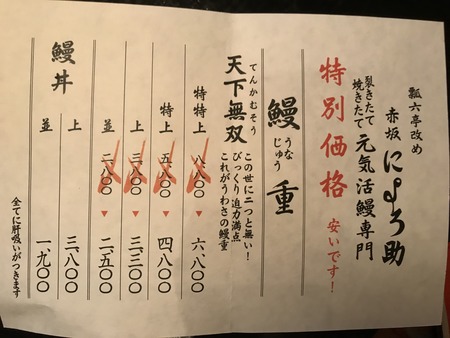 瓢六亭改め
赤坂 にょろ助
裂きたて
焼きたて
元気活鰻専門
特別価格 安いです!
鰻重
うなじゅう
てんかむそう
天下無双
この世に二つと無い!
びっくり迫力満点
これがうわさの鰻重
特特上 八、八〇〇 ▼ 六、八〇〇
特上 五、八〇〇 ▼ 四、八〇〇
上 三、八〇〇 ▼ 三、三〇〇
並 二、八〇〇 ▼ 二、五〇〇
鰻丼
上 三、八〇〇
並 一、九〇〇
全てに肝吸いがつきます